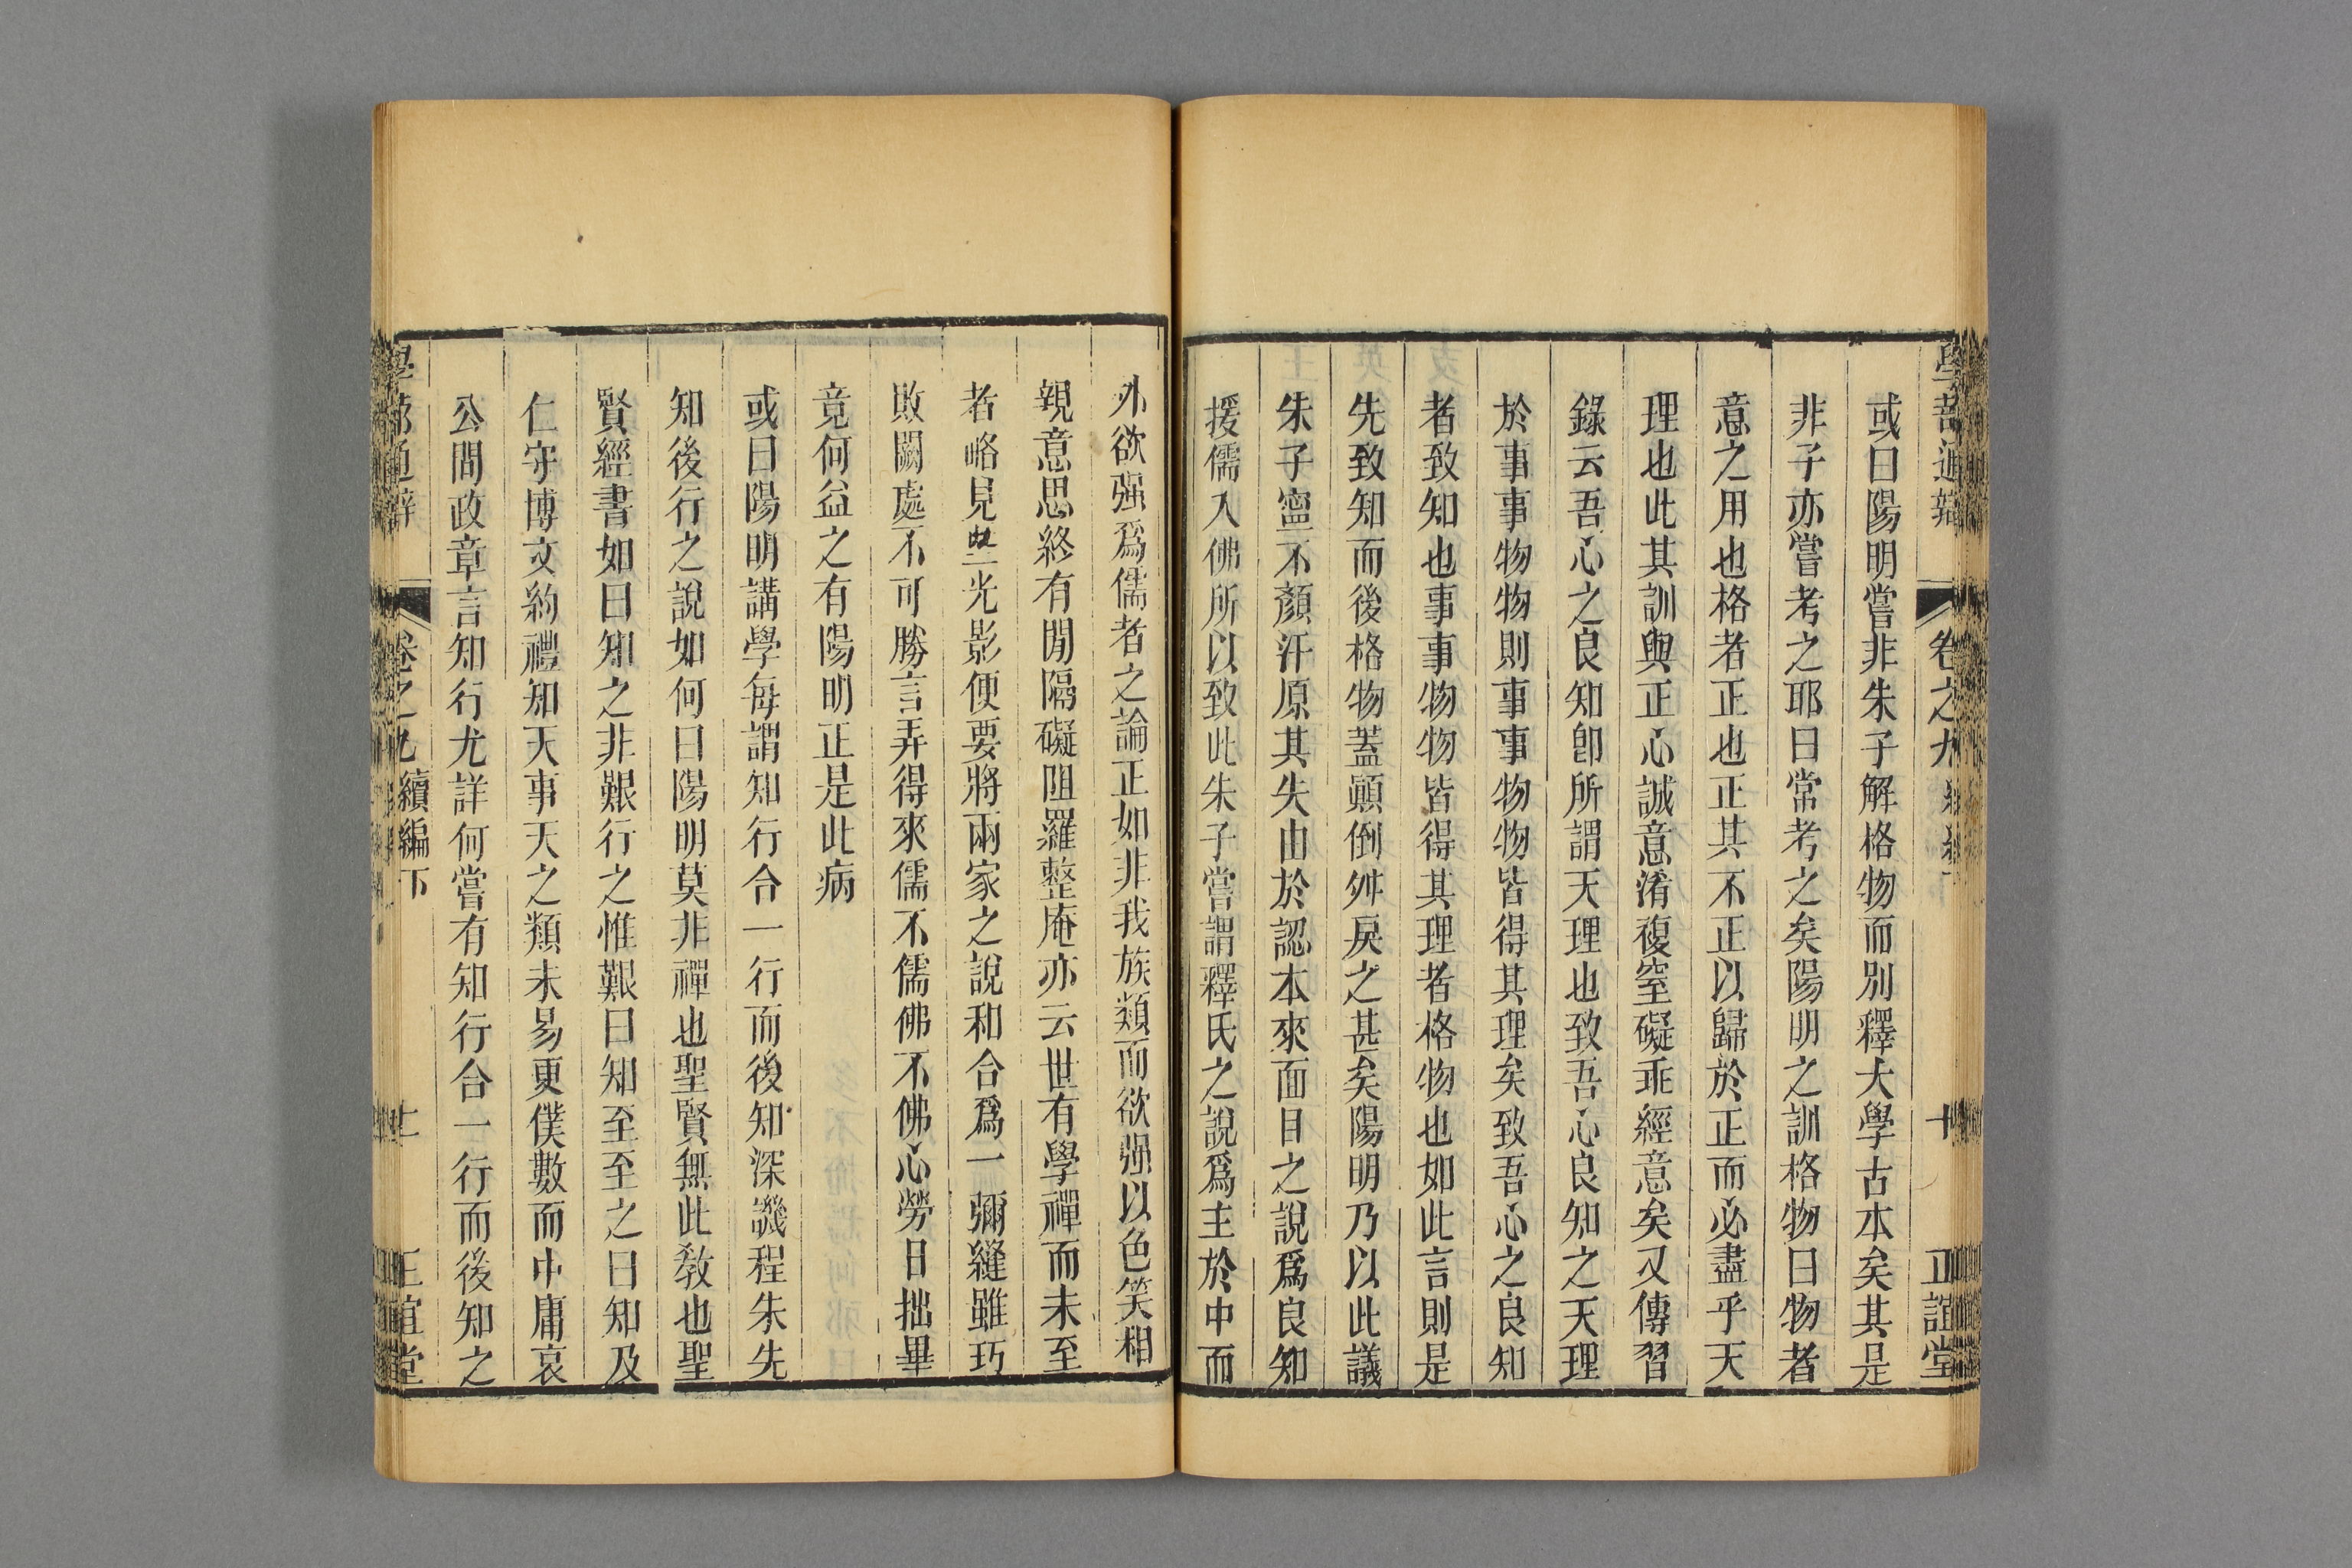 學蔀通辯 卷之九 十 正誼堂
或曰陽明嘗非朱子解格物而別釋大學古本矣其是
非子亦嘗考之耶曰常考之矣陽明之訓格物曰物者
意之用也格者正也正其不正以歸於正而必盡乎天
理也此其訓與正心誠意淆複窒礙乖經意矣又傳習
錄云吾心之良知卽所謂天理也致吾心良知之天理
於事事物物則事事物物皆得其理矣致吾心之良知
者致知也事事物物皆得其理者格物也如此言則是
先致知而後格物葢顚倒舛戾之甚矣陽明乃以此議
朱子寧不顏汗原其失由於認本來面目之說爲良知
援儒入佛所以致此朱子嘗謂釋氏之說爲主於中而
外欲强爲儒者之論正如非我族類而欲强以色笑相
親意思終有閒隔礙阻羅整庵亦云世有學禪而未至
者略見些光影便要將兩家之說和合爲一彌縫雖巧
敗闕處不可勝言弄得來儒不儒佛不佛心勞日拙畢
竟何益之有陽明正是此病
或曰陽明講學每謂知行合一行而後知深譏程朱先
知後行之說如何曰陽明莫非禪也聖賢無此敎也聖
賢經書如曰知之非艱行之惟艱曰知至至之曰知及
仁守博文約禮知天事天之類未易更僕數而中庸哀
公問政章言知行尤詳何嘗有知行合一行而後知之
學蔀通辯 卷之九 續編下 十一 正誼堂